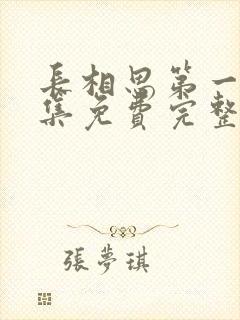 長相思第一
集免費完整
張夢琪